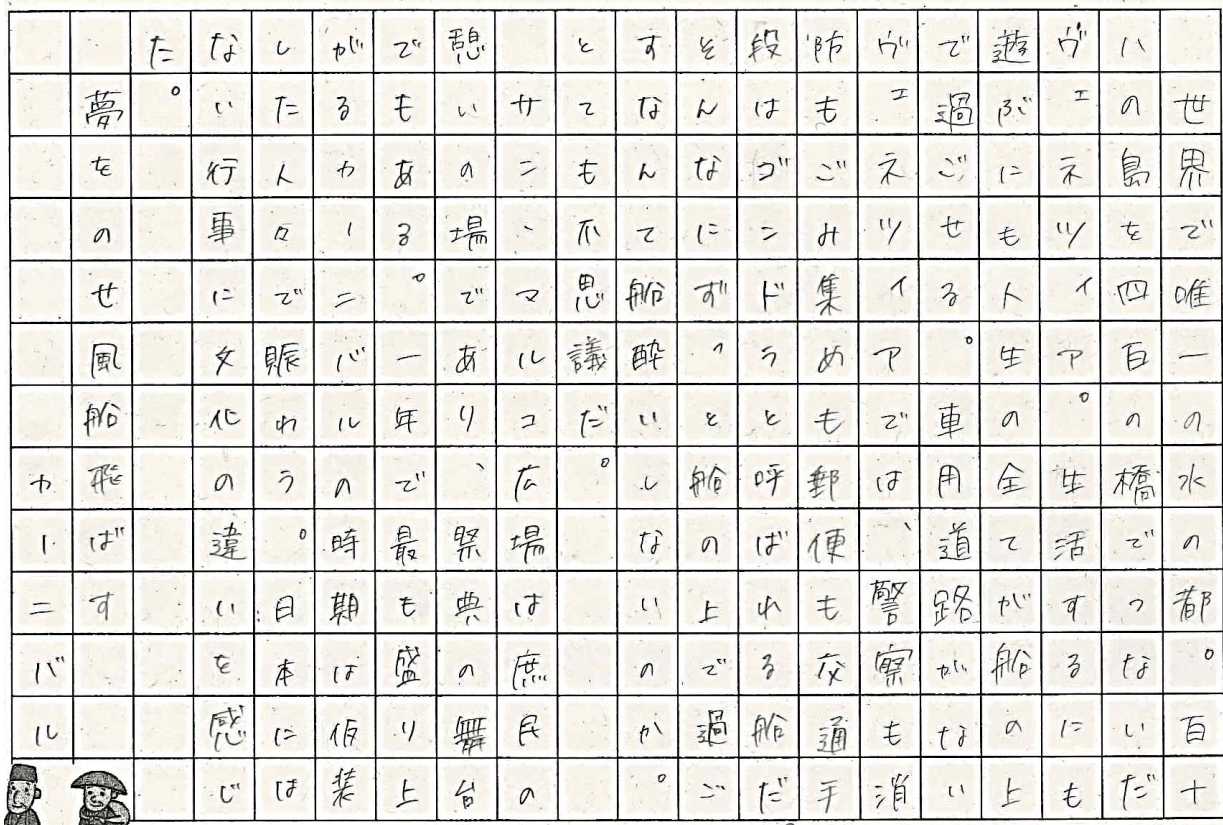 世界で唯一の水の都。百十
八の島を四百の橋でつないだ
ヴェネツィア。生活するにも
遊ぶにも人生の全てが船の上
で過ごせる。車用道路がない
ヴェネツィアでは、警察も消
防もごみ集めも郵便も交通手
段はゴンドラと呼ばれる船だ
そんなにずっと船の上で過ご
すなんて船酔いしないのか。
とても不思議だ。
サン、マルコ広場は庶民の
憩いの場であり、祭典の舞台
でもある。一年で最も盛り上
がるカーニバルの時期は仮装
した人々で賑わう。日本には
ない行事に文化の違いを感じ
た。
夢をのせ風船飛ばす
カーニバル